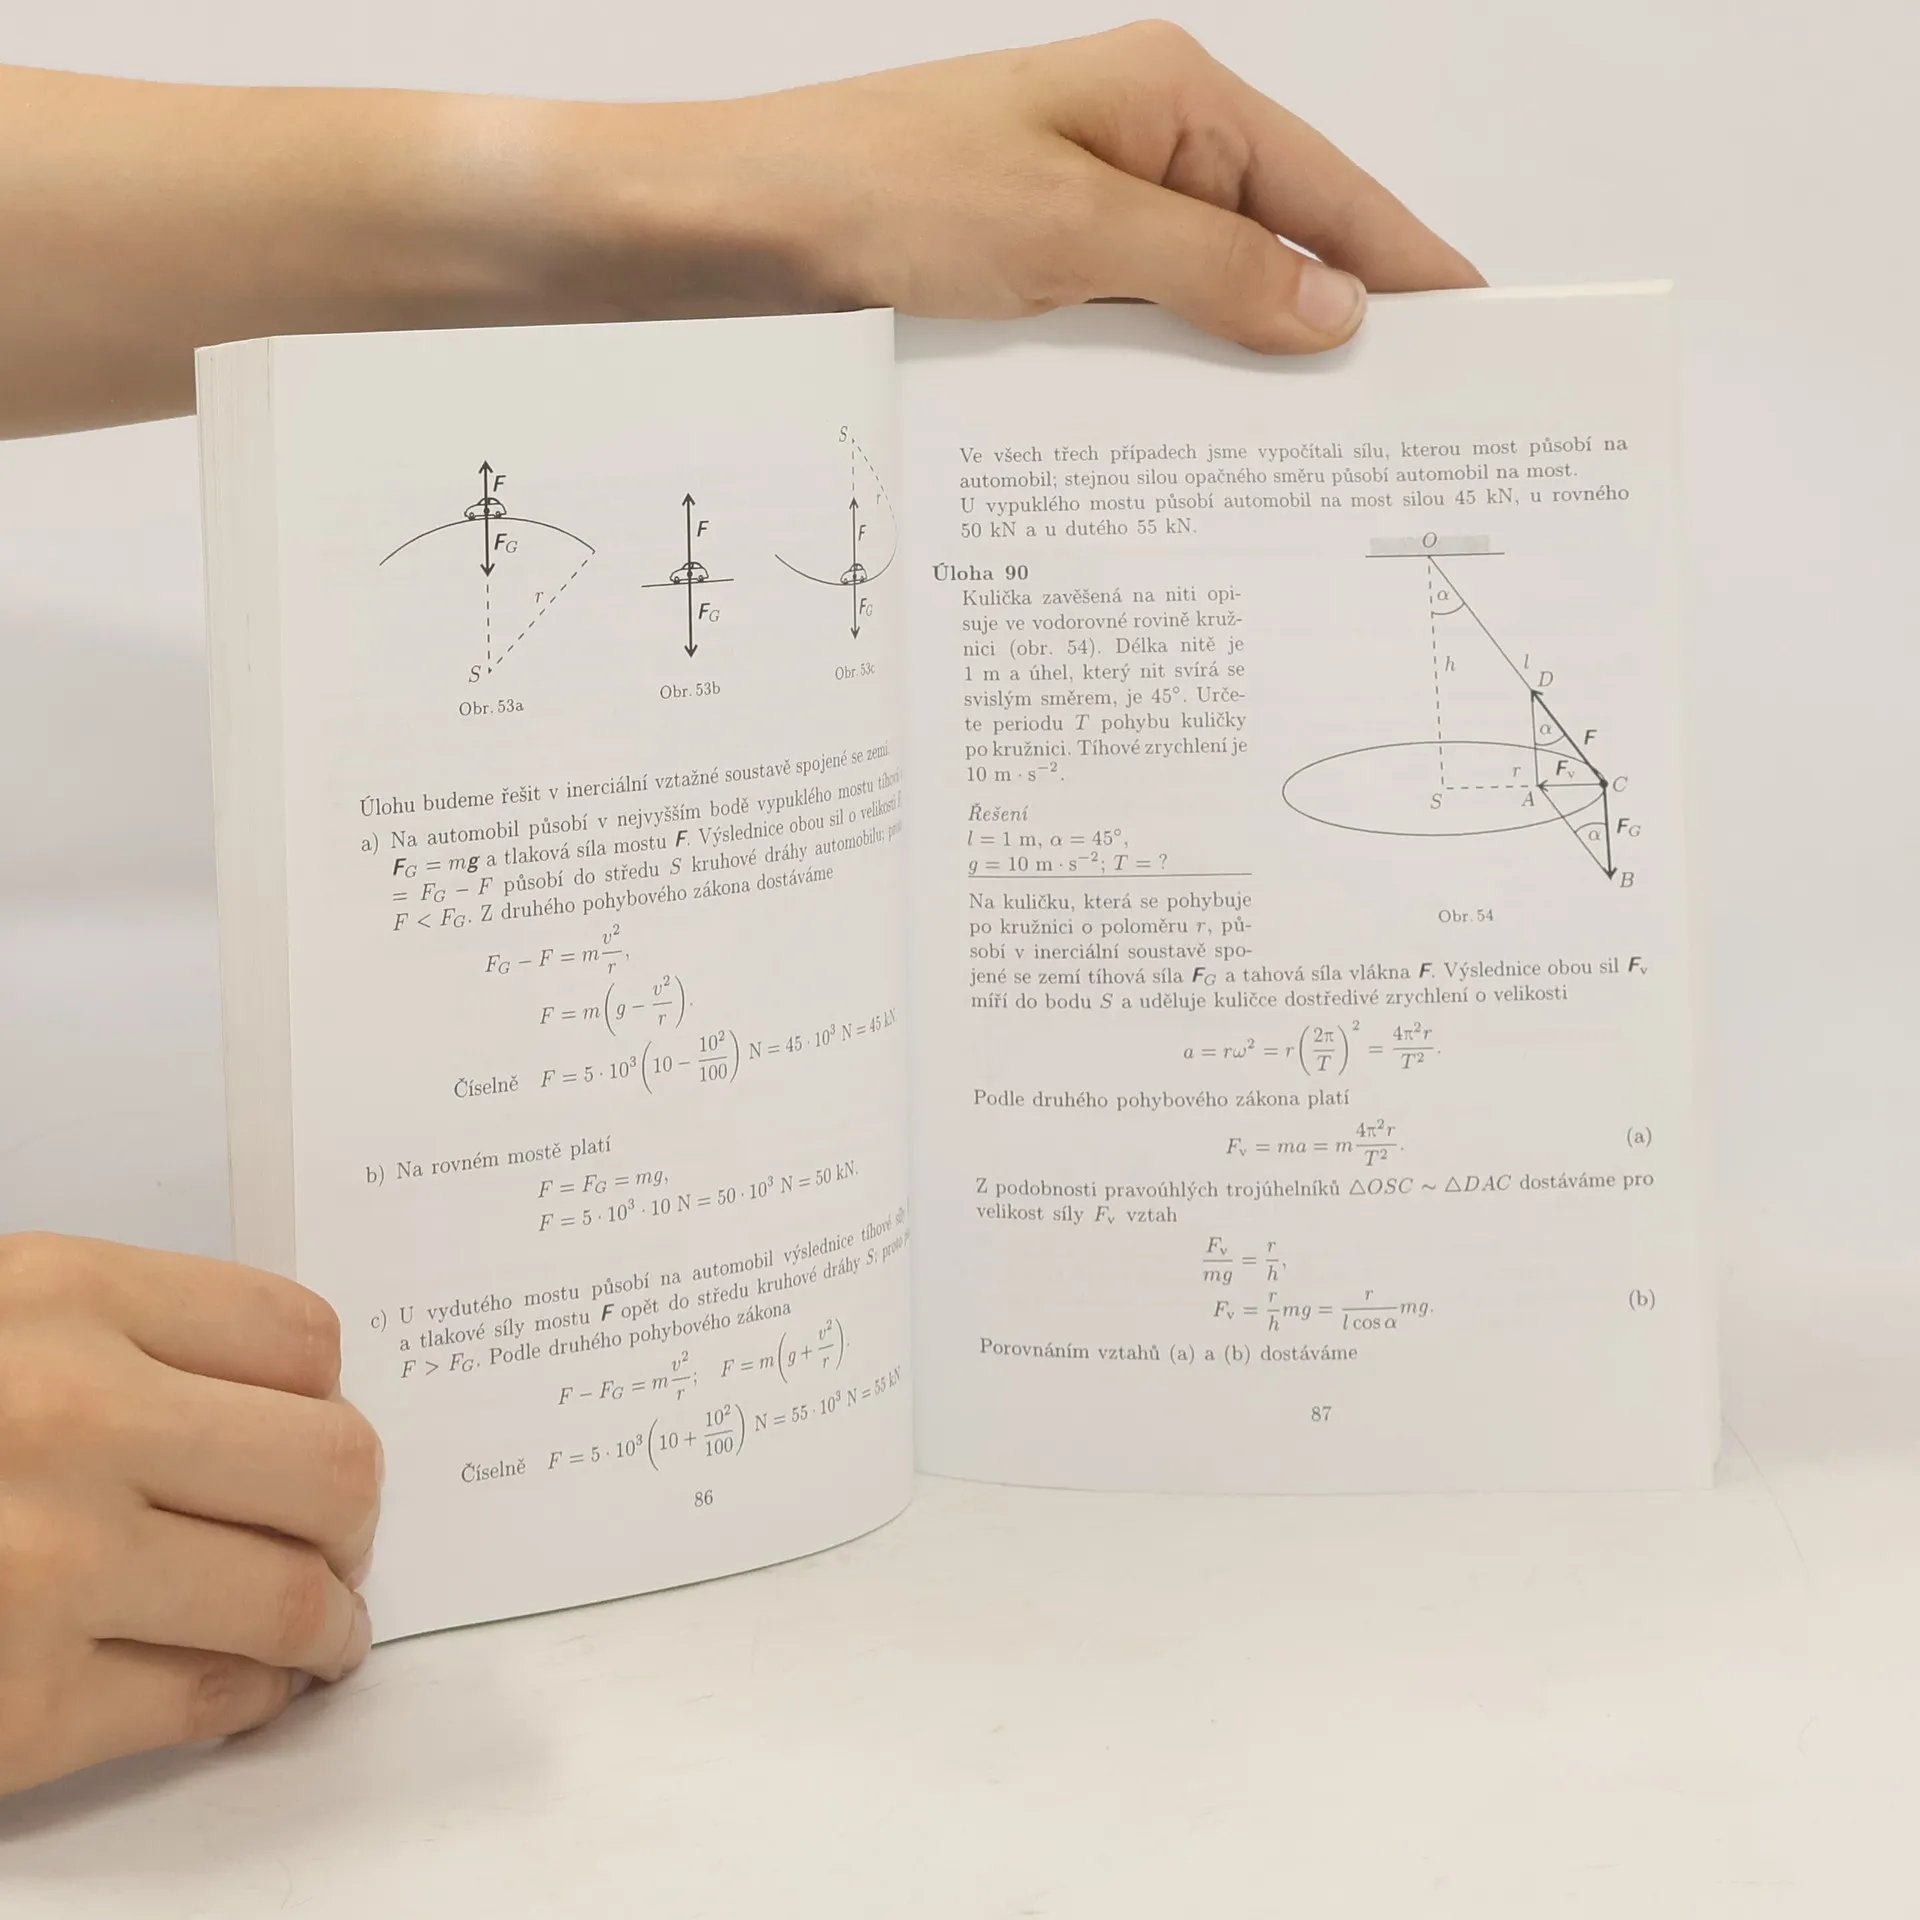 F
F_G
r
S
Obr. 53a
F
F_G
Obr. 53b
S
r
F
F_G
Obr. 53c
Úlohu budeme řešit v inerciální vztažné soustavě spojené se zemí.
a) Na automobil působí v nejvyšším bodě vypuklého mostu tíhová
F_G = mg a tlaková síla mostu F. Výslednice obou sil o velikosti
= F_G − F působí do středu S kruhové dráhy automobilu;
F < F_G. Z druhého pohybového zákona dostáváme
F_G − F = m v²/r,
F = m(g − v²/r).
Číselně F = 5 · 10³ (10 − 10²/100) N = 45 · 10³ N = 45 kN
b) Na rovném mostě platí
F = F_G = mg,
F = 5 · 10³ · 10 N = 50 · 10³ N = 50 kN.
c) U vydutého mostu působí na automobil výslednice tíhové síly
a tlakové síly mostu F opět do středu kruhové dráhy S; proto
F > F_G. Podle druhého pohybového zákona
F − F_G = m v²/r; F = m(g + v²/r).
Číselně F = 5 · 10³ (10 + 10²/100) N = 55 · 10³ N = 55 kN
86
Ve všech třech případech jsme vypočítali sílu, kterou most působí na
automobil; stejnou silou opačného směru působí automobil na most.
U vypuklého mostu působí automobil na most silou 45 kN, u rovného
50 kN a u dutého 55 kN.
Úloha 90
Kulička zavěšená na niti opi-
suje ve vodorovné rovině kruž-
nici (obr. 54). Délka nitě je
1 m a úhel, který nit svírá se
svislým směrem, je 45°. Urče-
te periodu T pohybu kuličky
po kružnici. Tíhové zrychlení je
10 m · s⁻².
Řešení
l = 1 m, α = 45°,
g = 10 m · s⁻²; T = ?
O
α
h
l
D
α
F
r
F_v
C
S
A
α
F_G
B
Obr. 54
Na kuličku, která se pohybuje
po kružnici o poloměru r, pů-
sobí v inerciální soustavě spo-
jené se zemí tíhová síla F_G a tahová síla vlákna F. Výslednice obou sil F_v
míří do bodu S a uděluje kuličce dostředivé zrychlení o velikosti
a = rω² = r(2π/T)² = 4π²r/T².
Podle druhého pohybového zákona platí
F_v = ma = m 4π²r/T². (a)
Z podobnosti pravoúhlých trojúhelníků △OSC ∼ △DAC dostáváme pro
velikost síly F_v vztah
F_v/mg = r/h,
F_v = r/h mg = r/(l cos α) mg. (b)
Porovnáním vztahů (a) a (b) dostáváme
87